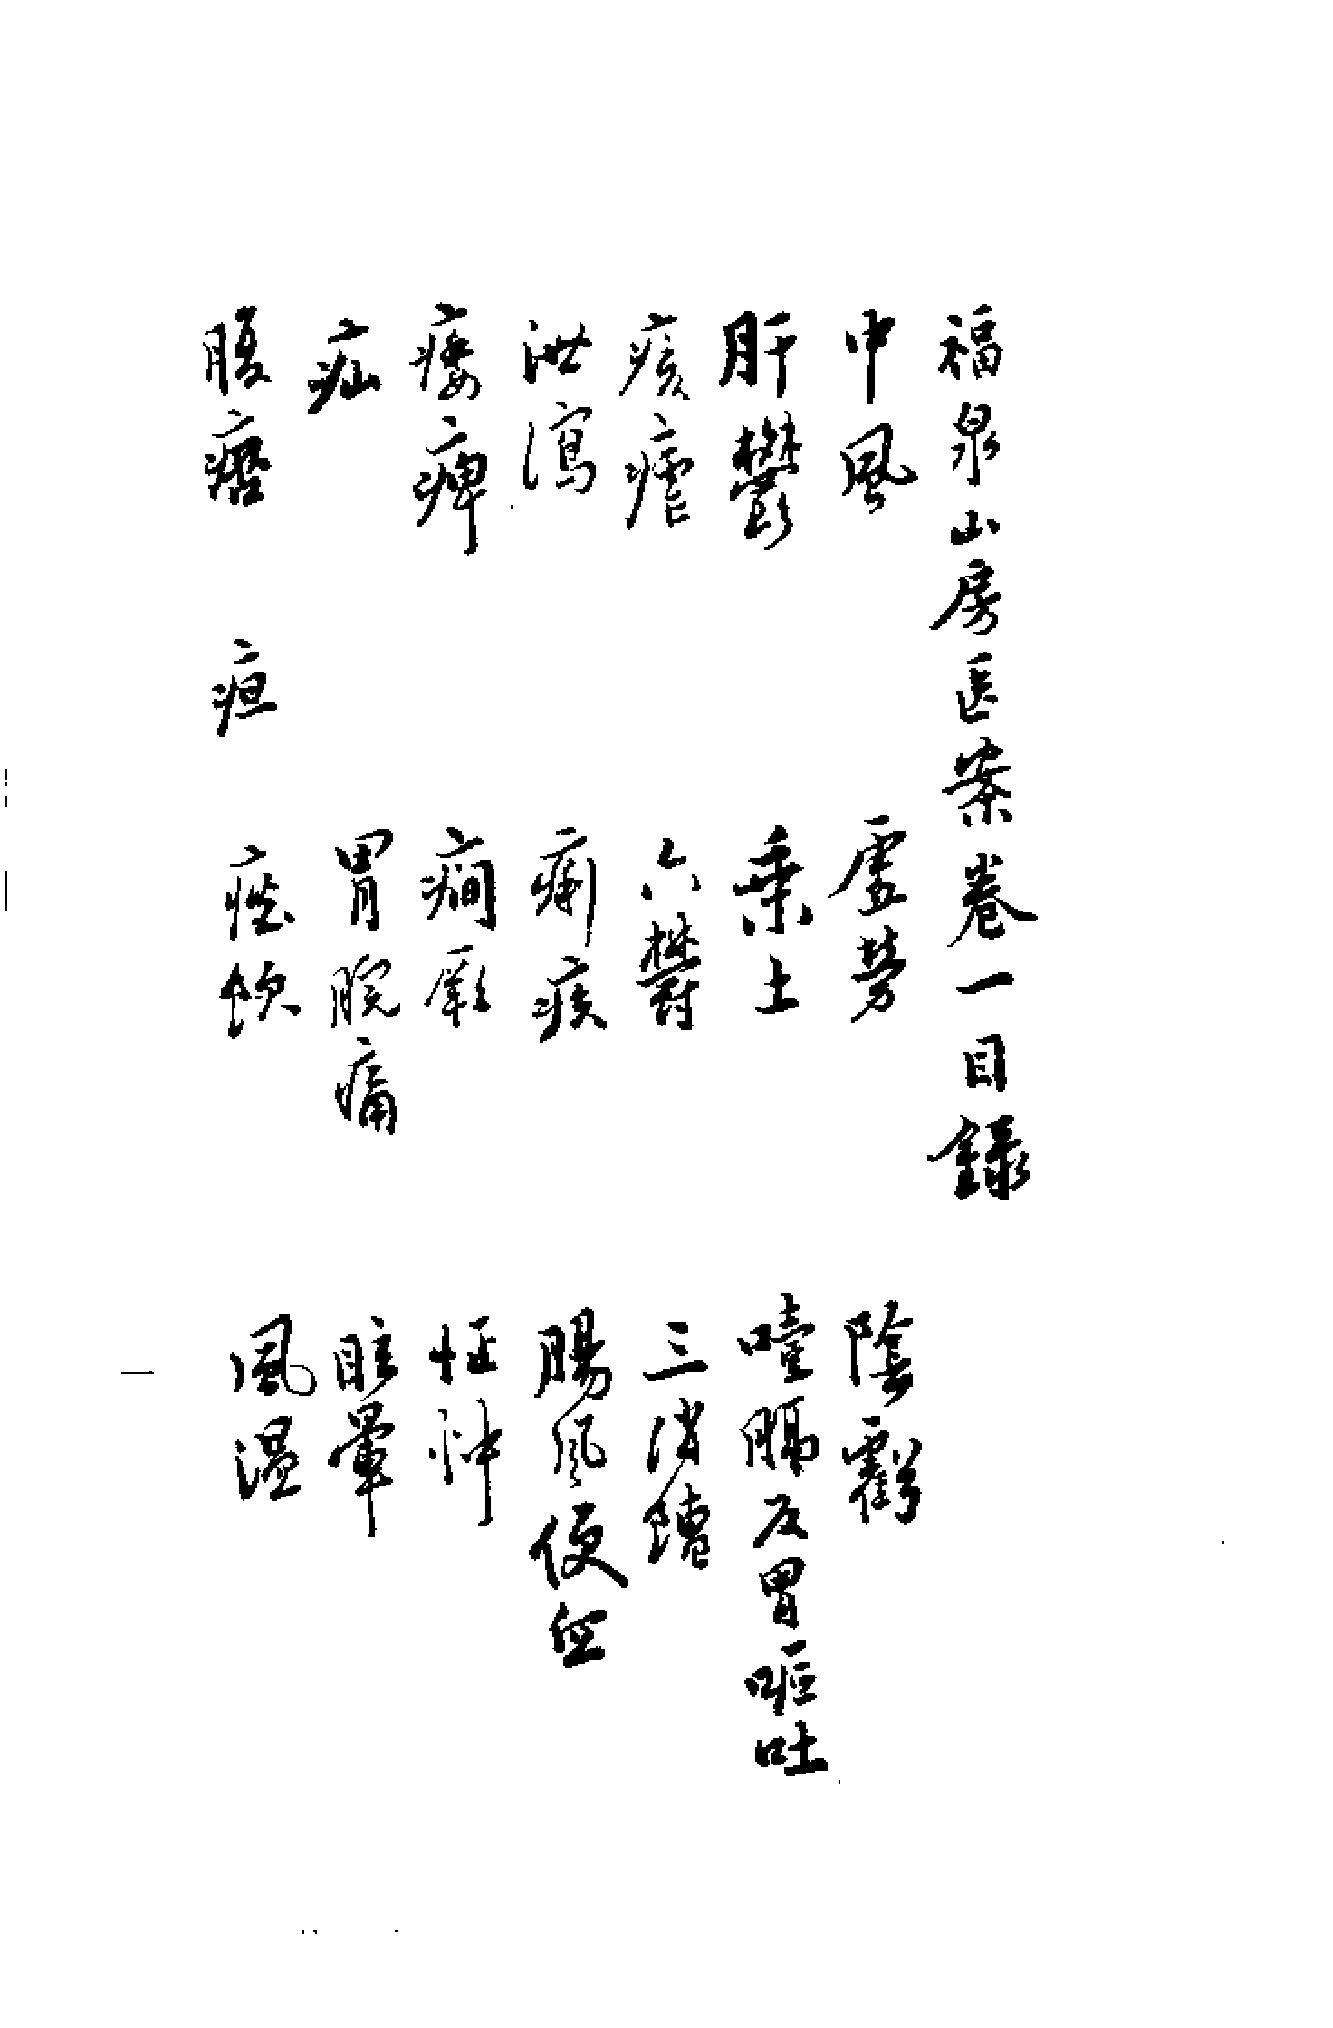 福泉山房医案卷一目錄
中風 虛勞 陰虧
肝鬱 乘土 噎膈反胃嘔吐
痎瘧 六鬱 三消 糟
泄瀉 痢疾 腸風便血
痿痺 癇厥 怔忡
疝 胃脘痛 眩暈
腹 疸 痰飲 風温
一